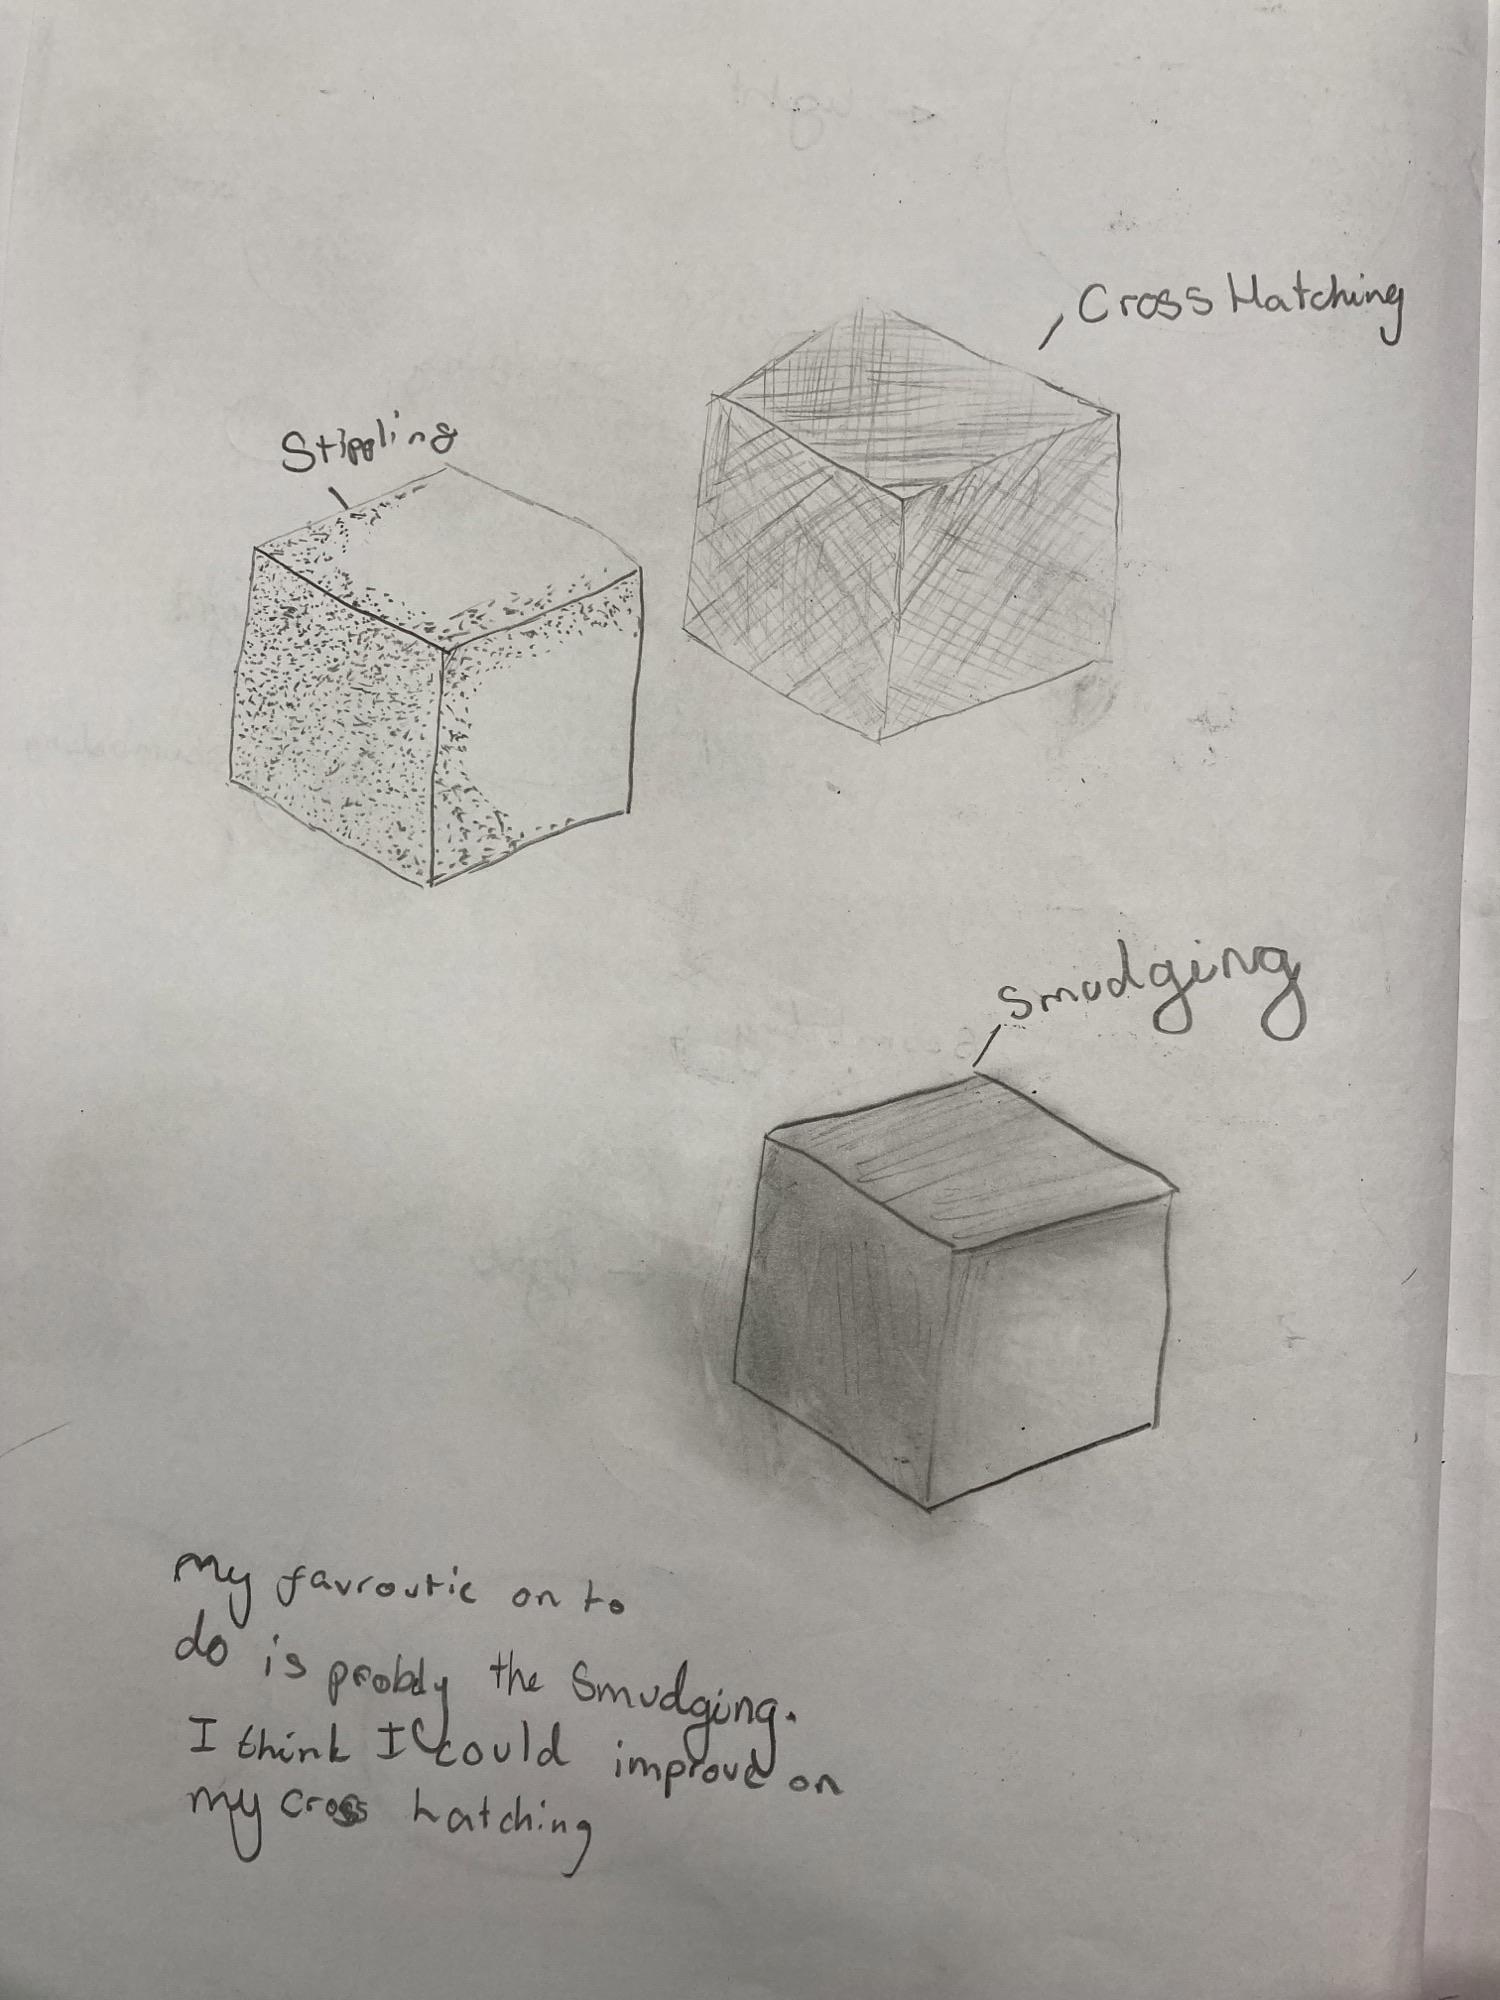 Cross Hatching
Stippling
Smudging
My favroutie on to
do is probly the Smudging.
I think I could improve on
my cross hatching